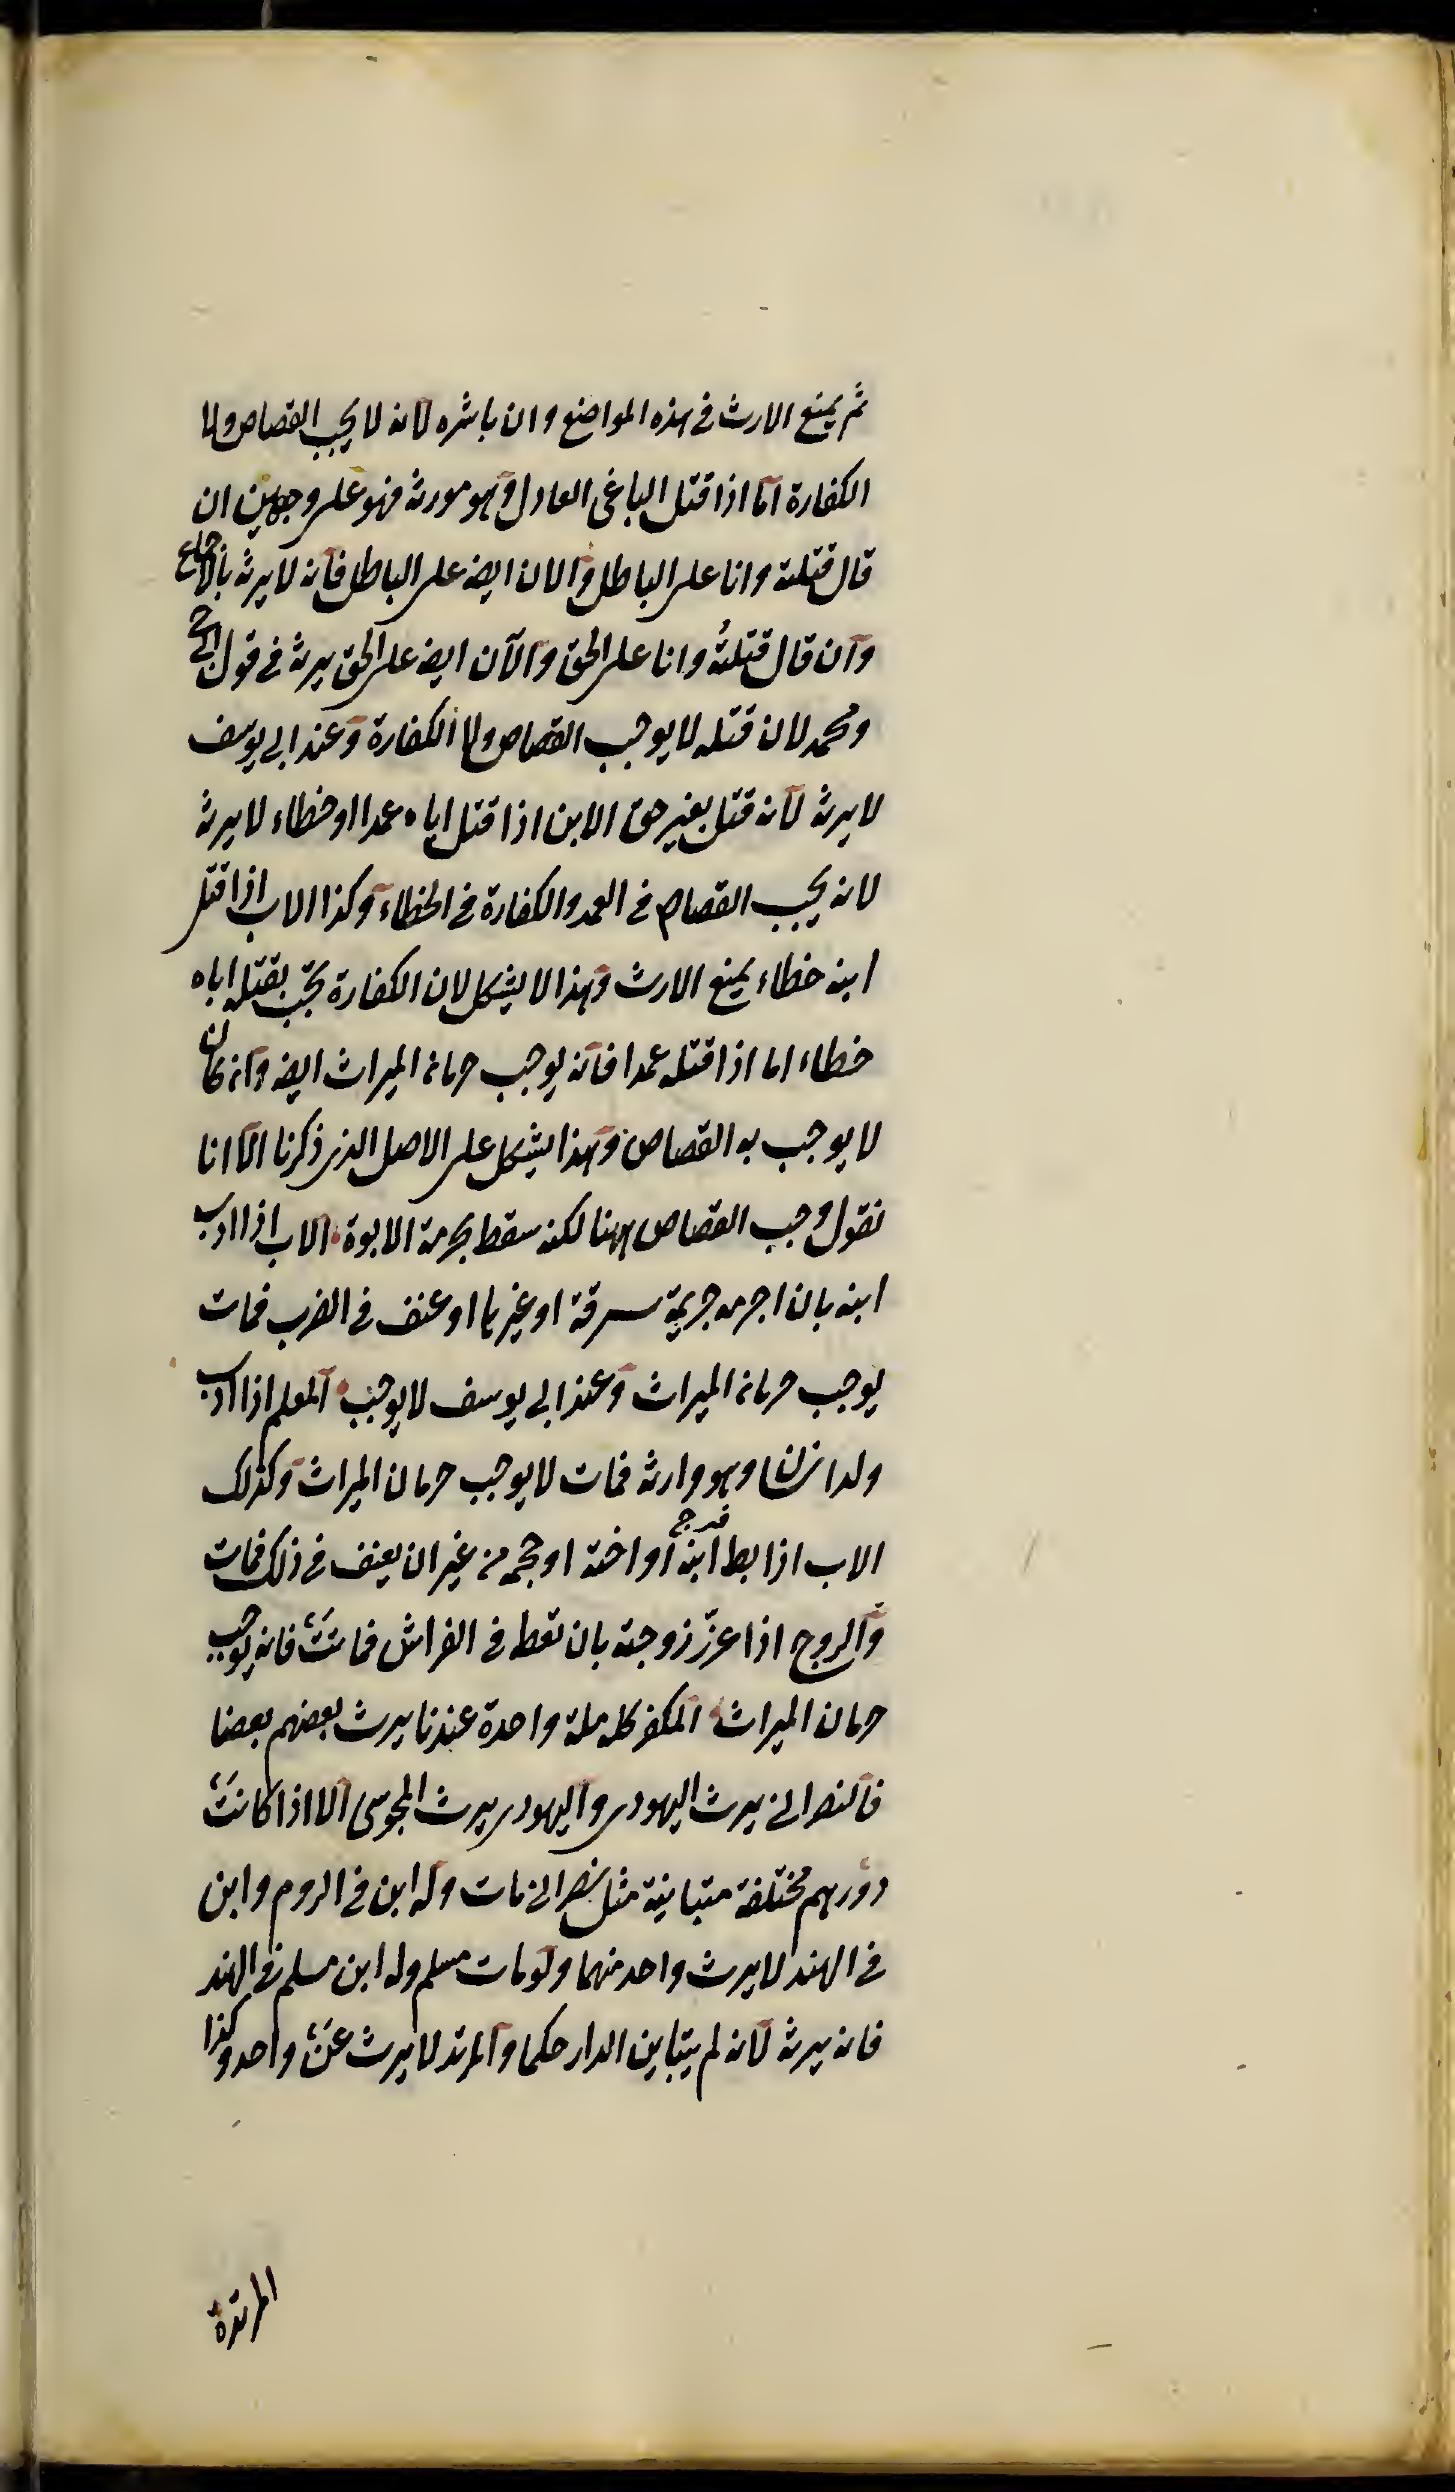 ثم يمنع الارث في هذه المواضع وان باشره لانه لا يجب القصاص ولا
الكفارة اما اذا قتل الباغي العادل وهو مورثه فهو على وجهين ان
قال قتلته وانا على الباطل والان ايضه على الباطل فانه لا يرثه بالاجماع
وان قال قتلتُه وانا على الحق والآن ايضه على الحق يرثه في قول ابي ح
ومحمد لان قتله لا يوجب القصاص ولا الكفارة وعند ابي يوسف
لا يرثه لانه قتل بغير حق الابن اذا قتل اباه عمدا او خطاء لا يرثه
لانه يجب القصاص في العمد والكفارة في الخطاء وكذا الاب اذا قتل
ابنه خطاء يمنع الارث وهذا لا يشكل لان الكفارة تجب بقتله اباه
خطاء اما اذا قتله عمدا فانه يوجب حرمان الميراث ايضه وان كان
لا يوجب به القصاص وهذا يشكل على الاصل الذي ذكرنا الا انا
نقول وجب القصاص ههنا لكنه سقط بحرمة الابوة الاب اذا ادب
ابنه بان اجرمه جريمة سرقة او غيرها او عنف في الضرب فمات
يوجب حرمان الميراث وعند ابي يوسف لا يوجب المعلم اذا ادب
ولدا وهو وارثه فمات لا يوجب حرمان الميراث وكذلك
الاب اذا بط ابنه او اخته او حجمه من غير ان يعنف في ذلك فمات
والزوج اذا عزّر زوجته بان في الفراش فماتت فانه يوجب
حرمان الميراث الكفر كله ملة واحدة عندنا يرث بعضهم بعضا
فالنصراني يرث اليهودي واليهودي يرث المجوسي الا اذا كانت
دورهم مختلفة متباينة مثل نصراني مات وله ابن في الروم وابن
في الهند لا يرث واحد منهما ولو مات مسلم وله ابن مسلم في الهند
فانه يرثه لانه لم يتباين الدار حكما والمرتد لا يرث عن واحد وكذا
المرتدة